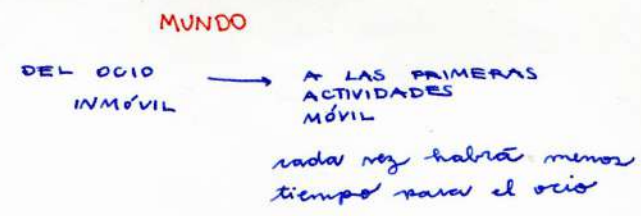 MUNDO
DEL OCIO
INMÓVIL
→ A LAS PRIMERAS
ACTIVIDADES
MÓVIL
cada vez habrá menos
tiempo para el ocio